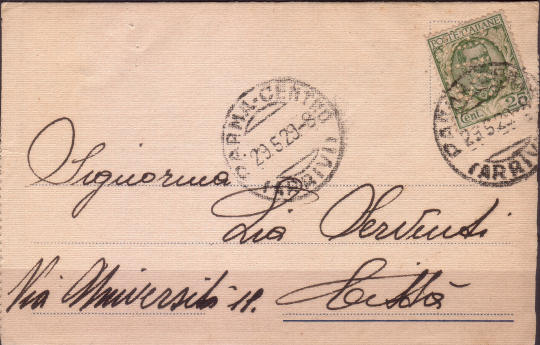 POSTE ITALIANE
Cent. 25
PARMA-CENTRO
29.5.29-8
(ARRIVI)
29.5.29
(ARRIVI
Signorina
Lia Serventi
Via Università 11.
Città